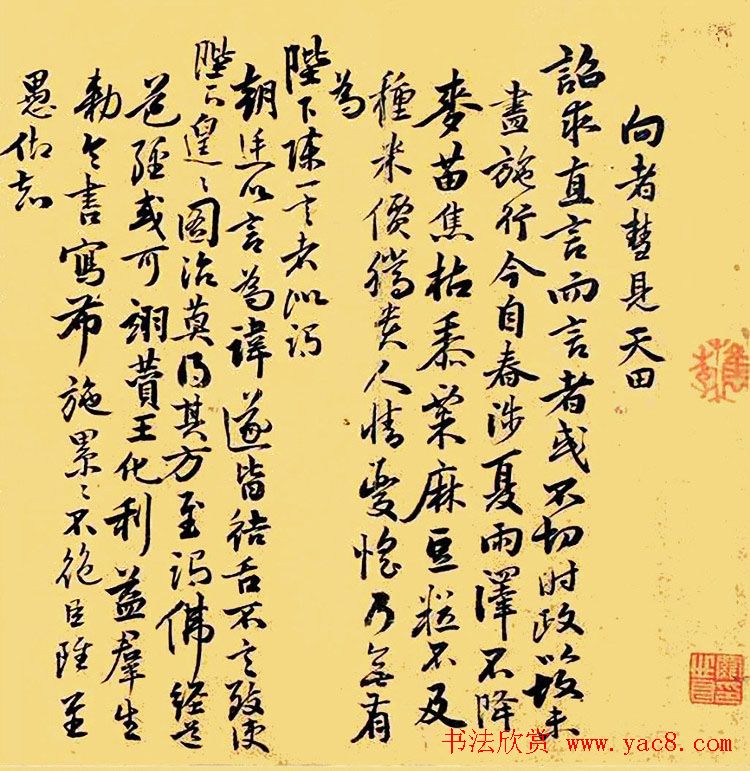 向者彗見天田
詔求直言而言者或不切时政以故未
盡施行今自春涉夏雨澤不降
麥苗焦枯黍粟麻豆粒不及
種米價騰貴人情憂惶乃無有
為
陛下陳一言者似謂
朝廷以言為諱遂皆結舌不言致使
陛下遑〻圖治莫得其方至謂佛經
經或可翊贊王化利益羣生
勅令書寫布施累〻不絕臣雖至
愚伏知
书法欣赏 www.yac8.com